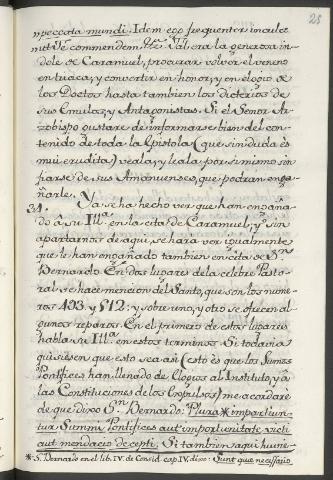 25
peccata mundi. Idem ego frequenter inculco
mitti commendem. Tal era la generosa in-
dole de Caramuel, procurar volver el veneno
en triaca, y convertir en honor, y en elogio de
los Doctos hasta tambien los dicterios de
sus Emulos, y Antagonistas. Si el Señor Ar-
zobispo gustare de informarse bien del con-
tenido de toda la Epistola (que sin duda es
mui erudita) veala, y leala por si mismo sin
fiarse de sus Amanuenses, que podran enga-
ñarle.
24. Ya se ha hecho ver que han engaña-
do à su Ill.ª en la cita de Caramuel, y sin
apartarnos de aqui, se hara ver igualmente
que le han engañado tambien en citas de S.n
Bernardo. En dos lugares de la celebre Pasto-
ral se hace mencion del Santo, que son los nume-
ros 403 y 512: y sobre uno, y otro se ofrecen al-
gunos reparos. En el primero de estos lugares
habla su Ill.ª en estos terminos. Si todavia
quisiesen que esto sea asi (esto es que los Sumos
Pontifices han llenado de Elogios al Instituto, y à
las Constituciones de los Expulsos) me acordare
de que dixo S.n Bernardo: Plura * importun-
tur Summi Pontifices aut importunitate victi
aut mendacio decepti. Si tambien aqui huvie-
* S. Bernardo en el lib. IV. de Consid. cap. IV. dixo: Sunt que necessario